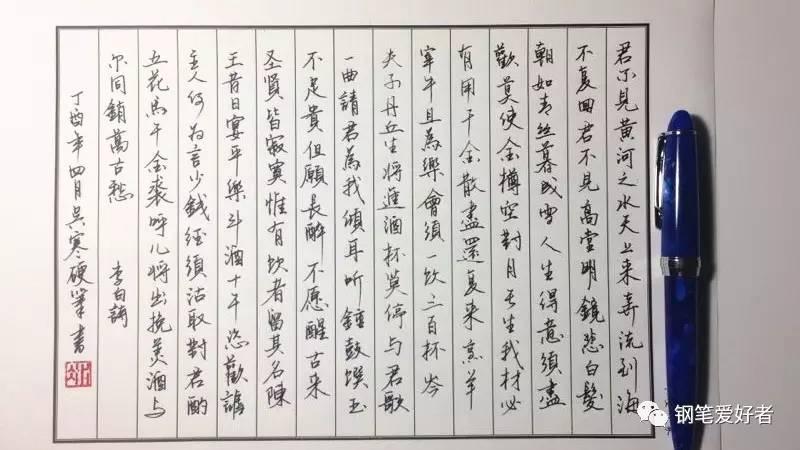 君不見黄河之水天上来奔流到海
不复回君不見高堂明鏡悲白髮
朝如青丝暮成雪人生得意須盡
歡莫使金樽空對月天生我材必
有用千金散盡還复来烹羊
宰牛且為樂會須一饮三百杯岑
夫子丹丘生将進酒杯莫停与君歌
一曲請君為我傾耳听鐘鼓馔玉
不足貴但願長醉不愿醒古来
圣賢皆寂寞惟有饮者留其名陳
王昔日宴平樂斗酒十千恣歡謔
主人何为言少錢径須沽取對君酌
五花馬千金裘呼儿将出换美酒与
尔同銷萬古愁 李白詩
丁酉年四月吴寒硬筆書
钢笔爱好者